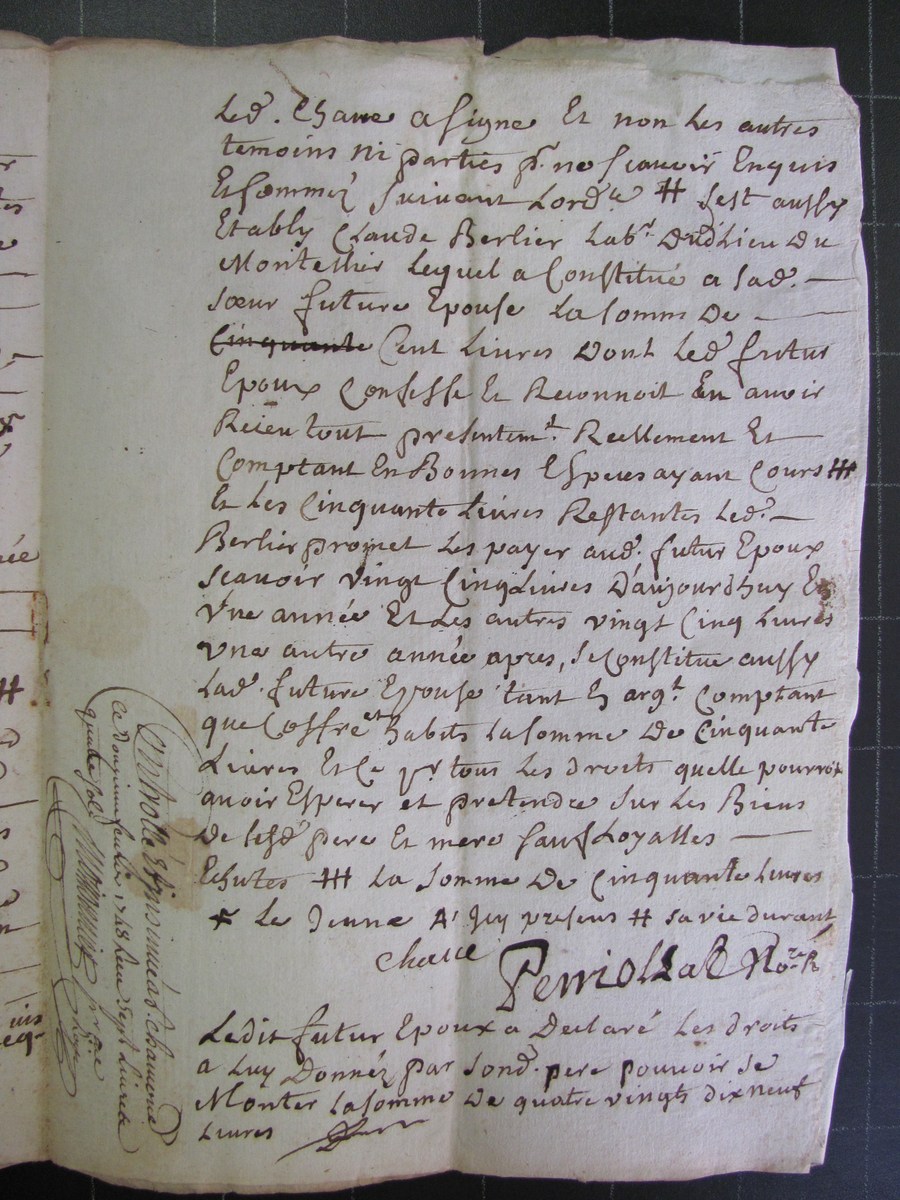 Led. Chave a signe Et non Les autres
temoins ni parties pr. ne scavoir Enquis
Et sommez suivant Lord.ce # sest aussy
Etably Claude Berlier Labr. dud Lieu du
Montellier Lequel a Constitué a sad. —
sœur future Epouse La somme de —
Cinquante Cent Livres dont Led. futur
Epoux Confesse Et Reconnoit En avoir
Receu tout presentemt. Reellement Et
Comptant En Bonnes Especes ayant Cours ###
Et Les Cinquante Livres Restantes Led. —
Berlier promet Les payer aud. futur Epoux
scavoir vingt Cinq Livres D'aujourdhuy En
Vne année Et Les autres vingt Cinq Livres
vne autre année apres, se Constitue aussy
Lad. future Epouse tant En argt. Comptant
que Coffre et habits La somme De Cinquante
Livres Et Ce pr. tous Les droits quelle pourroit
avoir Esperer et pretendre sur Les Biens
De sesd. pere Et mere sauf Loyalles —
Echutes ### La somme De Cinquante Livres
* Le Jeune A Icy presens # sa vie durant
chave
Perriolat No.re R
Ledit futur Epoux a Declaré Les droits
a Luy Donnéz par sond. pere pouvoir se
Monter La somme De quatre vingts dix neuf
Livres
Controllé & Insinué a
Ce douzieme 1748 Receu Sept Livres
quatre sols